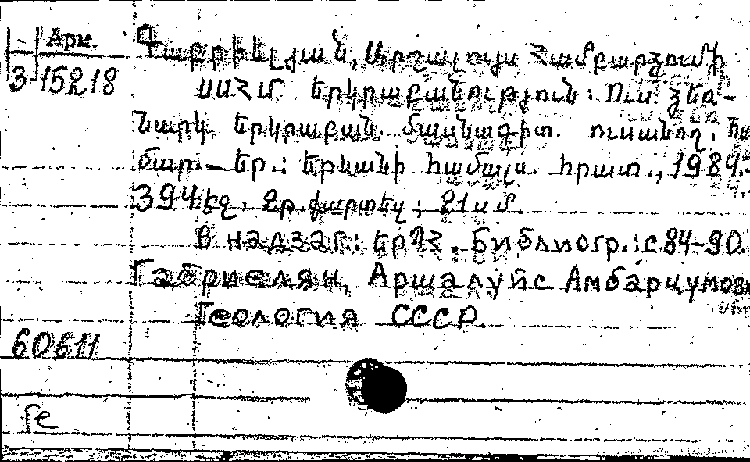 Арм.
3-15218
Գաբրիելյան, Արշալույս Համբարձումի
ՍՍՀՄ երկրաբանություն: Ուս. ձեռ-
նարկ երկրաբան. մասնագիտ. ուսանող. հա
մար.— Եր.: Երևանի համալս. հրատ., 1984.-
394 էջ. գր. քարտեզ; 21 սմ.
В надзаг.: ԵրՊՀ. Библиогр.: с. 84-90.
Габриелян, Аршалуйс Амбарцумови
Геология СССР.
60611